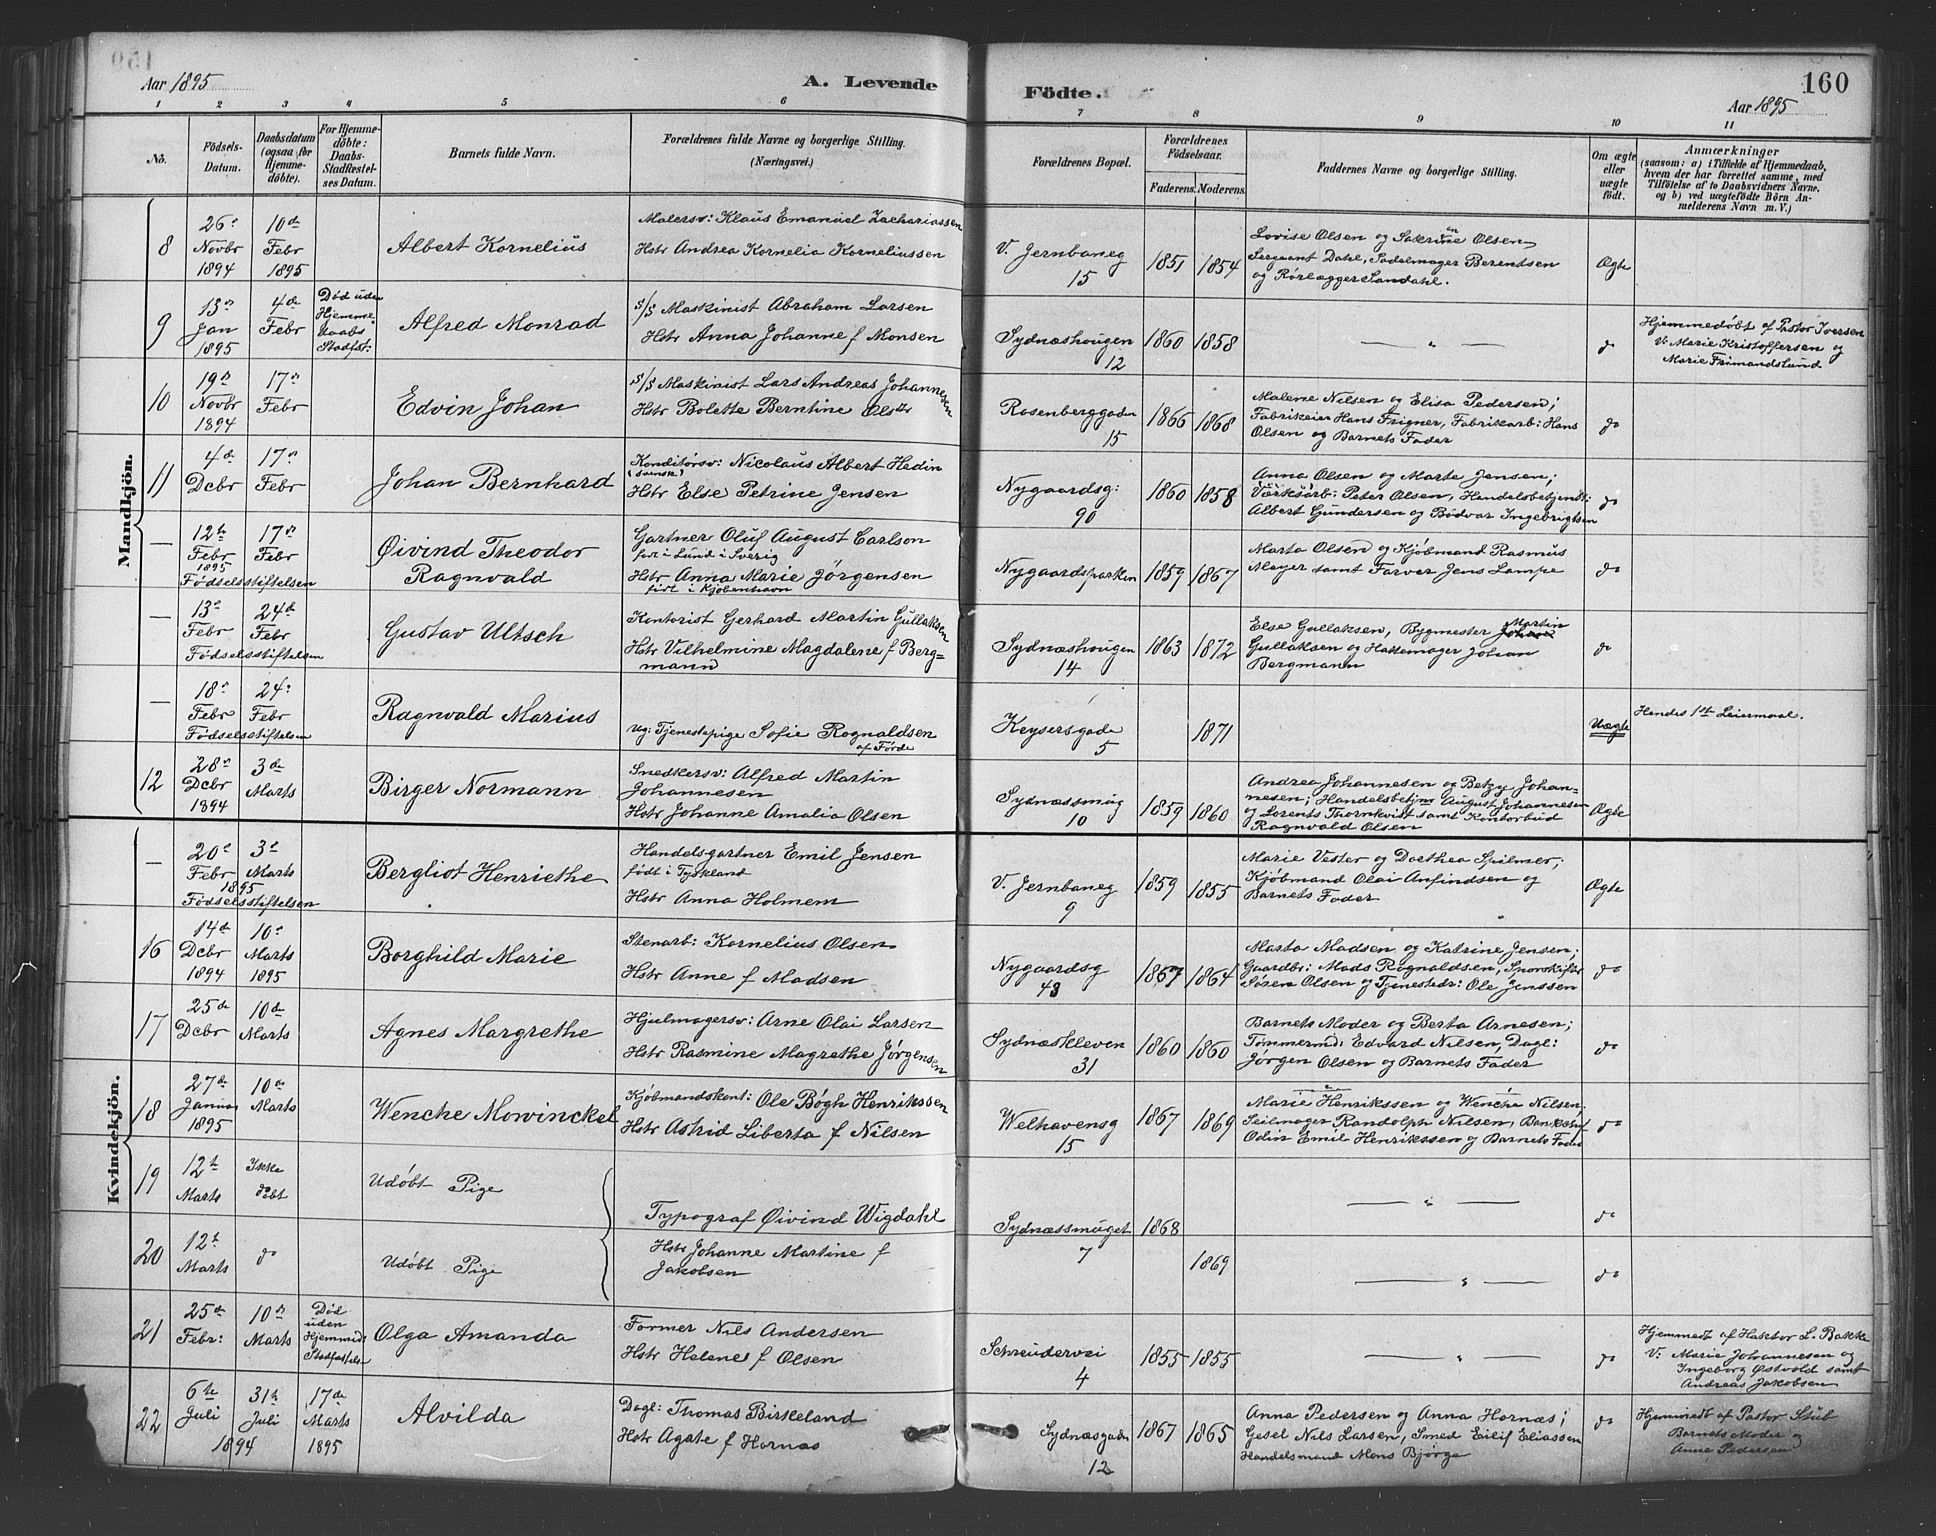 Aar 1895
A. Levende
Födte.
160
Aar 1895
1 2 3 4 5 6 7 8 9 10 11
No.
Födsels-
Datum.
Daabsdatum
(ogsaa for
Hjemme-
döbte).
For Hjemme-
döbte:
Daabs-
Stadfæstel-
ses Datum.
Barnets fulde Navn.
Forældrenes fulde Navne og borgerlige Stilling.
(Næringsvei.)
Forældrenes Bopæl.
Forældrenes
Födselsaar.
Faderens. Moderens.
Faddernes Navne og borgerlige Stilling.
Om ægte
eller
uægte
födt.
Anmærkninger
(saasom: a) i Tilfælde af Hjemmedaab,
hvem der har forrettet samme, med
Tilföielse af to Daabsvidners Navne,
og b) ved uægtefödte Börn An-
melderens Navn m. V.)
Mandkjön.
8
26
Novbr
1894
10de
Febr
1895
Albert Kornelius
Malersv: Klaus Emanuel Zachariassen
Hstr Andrea Kornelia Korneliussen
V. Jernbaneg
15
1851
1854
Lovise Olsen og Sakrine Olsen
Sergeant Dahl, Sadelmager Berentsen
og Rørlægger Sandahl.
Ægte
9
13
Jan
1895
4de
Febr
Død uden
Hjemme-
daabs
Stadfst:
Alfred Monrad
S/S Maskinist Abraham Larsen
Hstr Anna Johanne f Monsen
Sydnæshougen
12
1860
1858
— " —
do
Hjemmedøbt af Pastor Iversen
V: Marie Kristoffersen og
Marie Frimandslund
10
19
Novbr
1894
17
Febr
Edvin Johan
S/S Maskinist Lars Andreas Johannesen
Hstr Bolette Berntine Olsdtr
Rosenberggade
15
1866
1868
Malene Nilsen og Elisa Pedersen;
Fabrikeier Hans Frigner, Fabrikarb: Hans
Olsen og Barnets Fader
do
11
4de
Dcbr
17
Febr
Johan Bernhard
Konditorsv: Nicolaus Albert Hedin
(svensk)
Hstr Else Petrine Jensen
Nygaardsg:
90
1860
1858
Anna Olsen og Marte Jensen;
Værksarb: Peter Olsen, Handelsbetjent:
Albert Gundersen og Bødvar Ingebrigtsen
do
—
12te
Febr
1895
Fødselsstiftelsen
17
Febr
Øivind Theodor
Ragnvald
Gartner Oluf August Carlson
født i Lund i Sverig
Hstr Anna Marie Jørgensen
født i Kjøbenhavn
Nygaardsparken
1859
1867
Marta Olsen og Kjøbmand Rasmus
Meyer samt Farver Jens Lampe
do
—
13
Febr
Fødselsstiftelsen
24de
Febr
Gustav Ultsch
Kontorist Gerhard Martin Gullaksen
Hstr Vilhelmine Magdalene f Berg=
mann
Sydnæshougen
14
1863
1872
Else Gullaksen, Bygmester Johan Martin
Gullaksen og Hattemager Johan
Bergmann
do
—
18
Febr
Fødselsstiftelsen
24
Febr
Ragnvald Marius
Ug: Tjenestepige Sofie Rognaldsen
af Førde
Keysersgade
5
1871
Uægte
Hendes 1ste Leiermaal.
12
28
Dcbr
1894
3de
Marts
Birger Normann
Snedkersv: Alfred Martin
Johannesen
Hstr Johanne Amalia Olsen
Sydnæssmug
10
1859
1860
Andrea Johannesen og Betzy Johan-
nesen; Handelsbetjn August Johannesen
og Lorents Thornkvist samt Kontorbud
Ragnvald Olsen
Ægte
Kvindekjön.
—
20
Febr
1895
Fødselsstiftelsen
3
Marts
Bergliot Henriethe
Handelsgartner Emil Jensen
født i Tyskland
Hstr Anna Holmem
V. Jernbaneg
9
1859
1855
Marie Vester og Dorthea Spilmer;
Kjøbmand Olai Anfindsen og
Barnets Fader
Ægte
16
14de
Dcbr
1894
10
Marts
1895
Borghild Marie
Stenarb: Kornelius Olsen
Hstr Anne f Madsen
Nygaardsg
43
1867
1864
Marta Madsen og Katrine Jensen;
Gaardbr: Mads Rognaldsen, Sporskifter
Søren Olsen og Tjenestedr: Ole Jenssen
do
17
25de
Dcbr
10de
Marts
Agnes Margrethe
Hjulmagersv: Arne Olai Larsen
Hstr Rasmine Magrethe Jørgensen
Sydnæskleven
31
1860
1860
Barnets Moder og Berta Arnesen;
Tømmermd: Edvard Nilsen, Dagl:
Jørgen Olsen og Barnets Fader
do
18
27de
Januar
1895
10de
Marts
Wenche Mowinckel
Kjøbmandskont: Ole Bøgh Henrikssen
Hstr Astrid Liberta f Nilsen
Welhavensg
15
1867
1869
Marie Henrikssen og Wenche Nilsen;
Seilmager Randolph Nilsen,
Odin Emil Henrikssen og Barnets Fader
do
19
12te
Marts
Ikke
døbt
Udøbt Pige
Typograf Øivind Wigdahl
Sydnæssmuget
7
1868
— " —
do
20
12te
Marts
do
Udøbt Pige
Hstr Johanne Martine f
Jakobsen
1869
— " —
do
21
25de
Febr:
10
Marts
Død
uden
Hjemmed:
Stadfæstelse
Olga Amanda
Former Nils Andersen
Hstr Helene f Olsen
Schreudervei
4
1855
1855
— " —
do
Hjemmedt af Haktor L. Bakke
V: Marie Johannesen og
Ingeborg Østvold samt
Andreas Jakobsen
22
6te
Juli
31te
Juli
1894
17de
Marts
1895
Alvilda
Dagl: Thomas Birkeland
Hstr Agate f Hornæs
Sydnæsgaden
12
1867
1865
Anna Pedersen og Anna Hornæs;
Gesel Nils Larsen, Smed Eilif Eliassen
Handelsmand Mons Bjørge
do
Hjemmedt af Pastor Stub
Barnets Moder og
Anne Pedersen